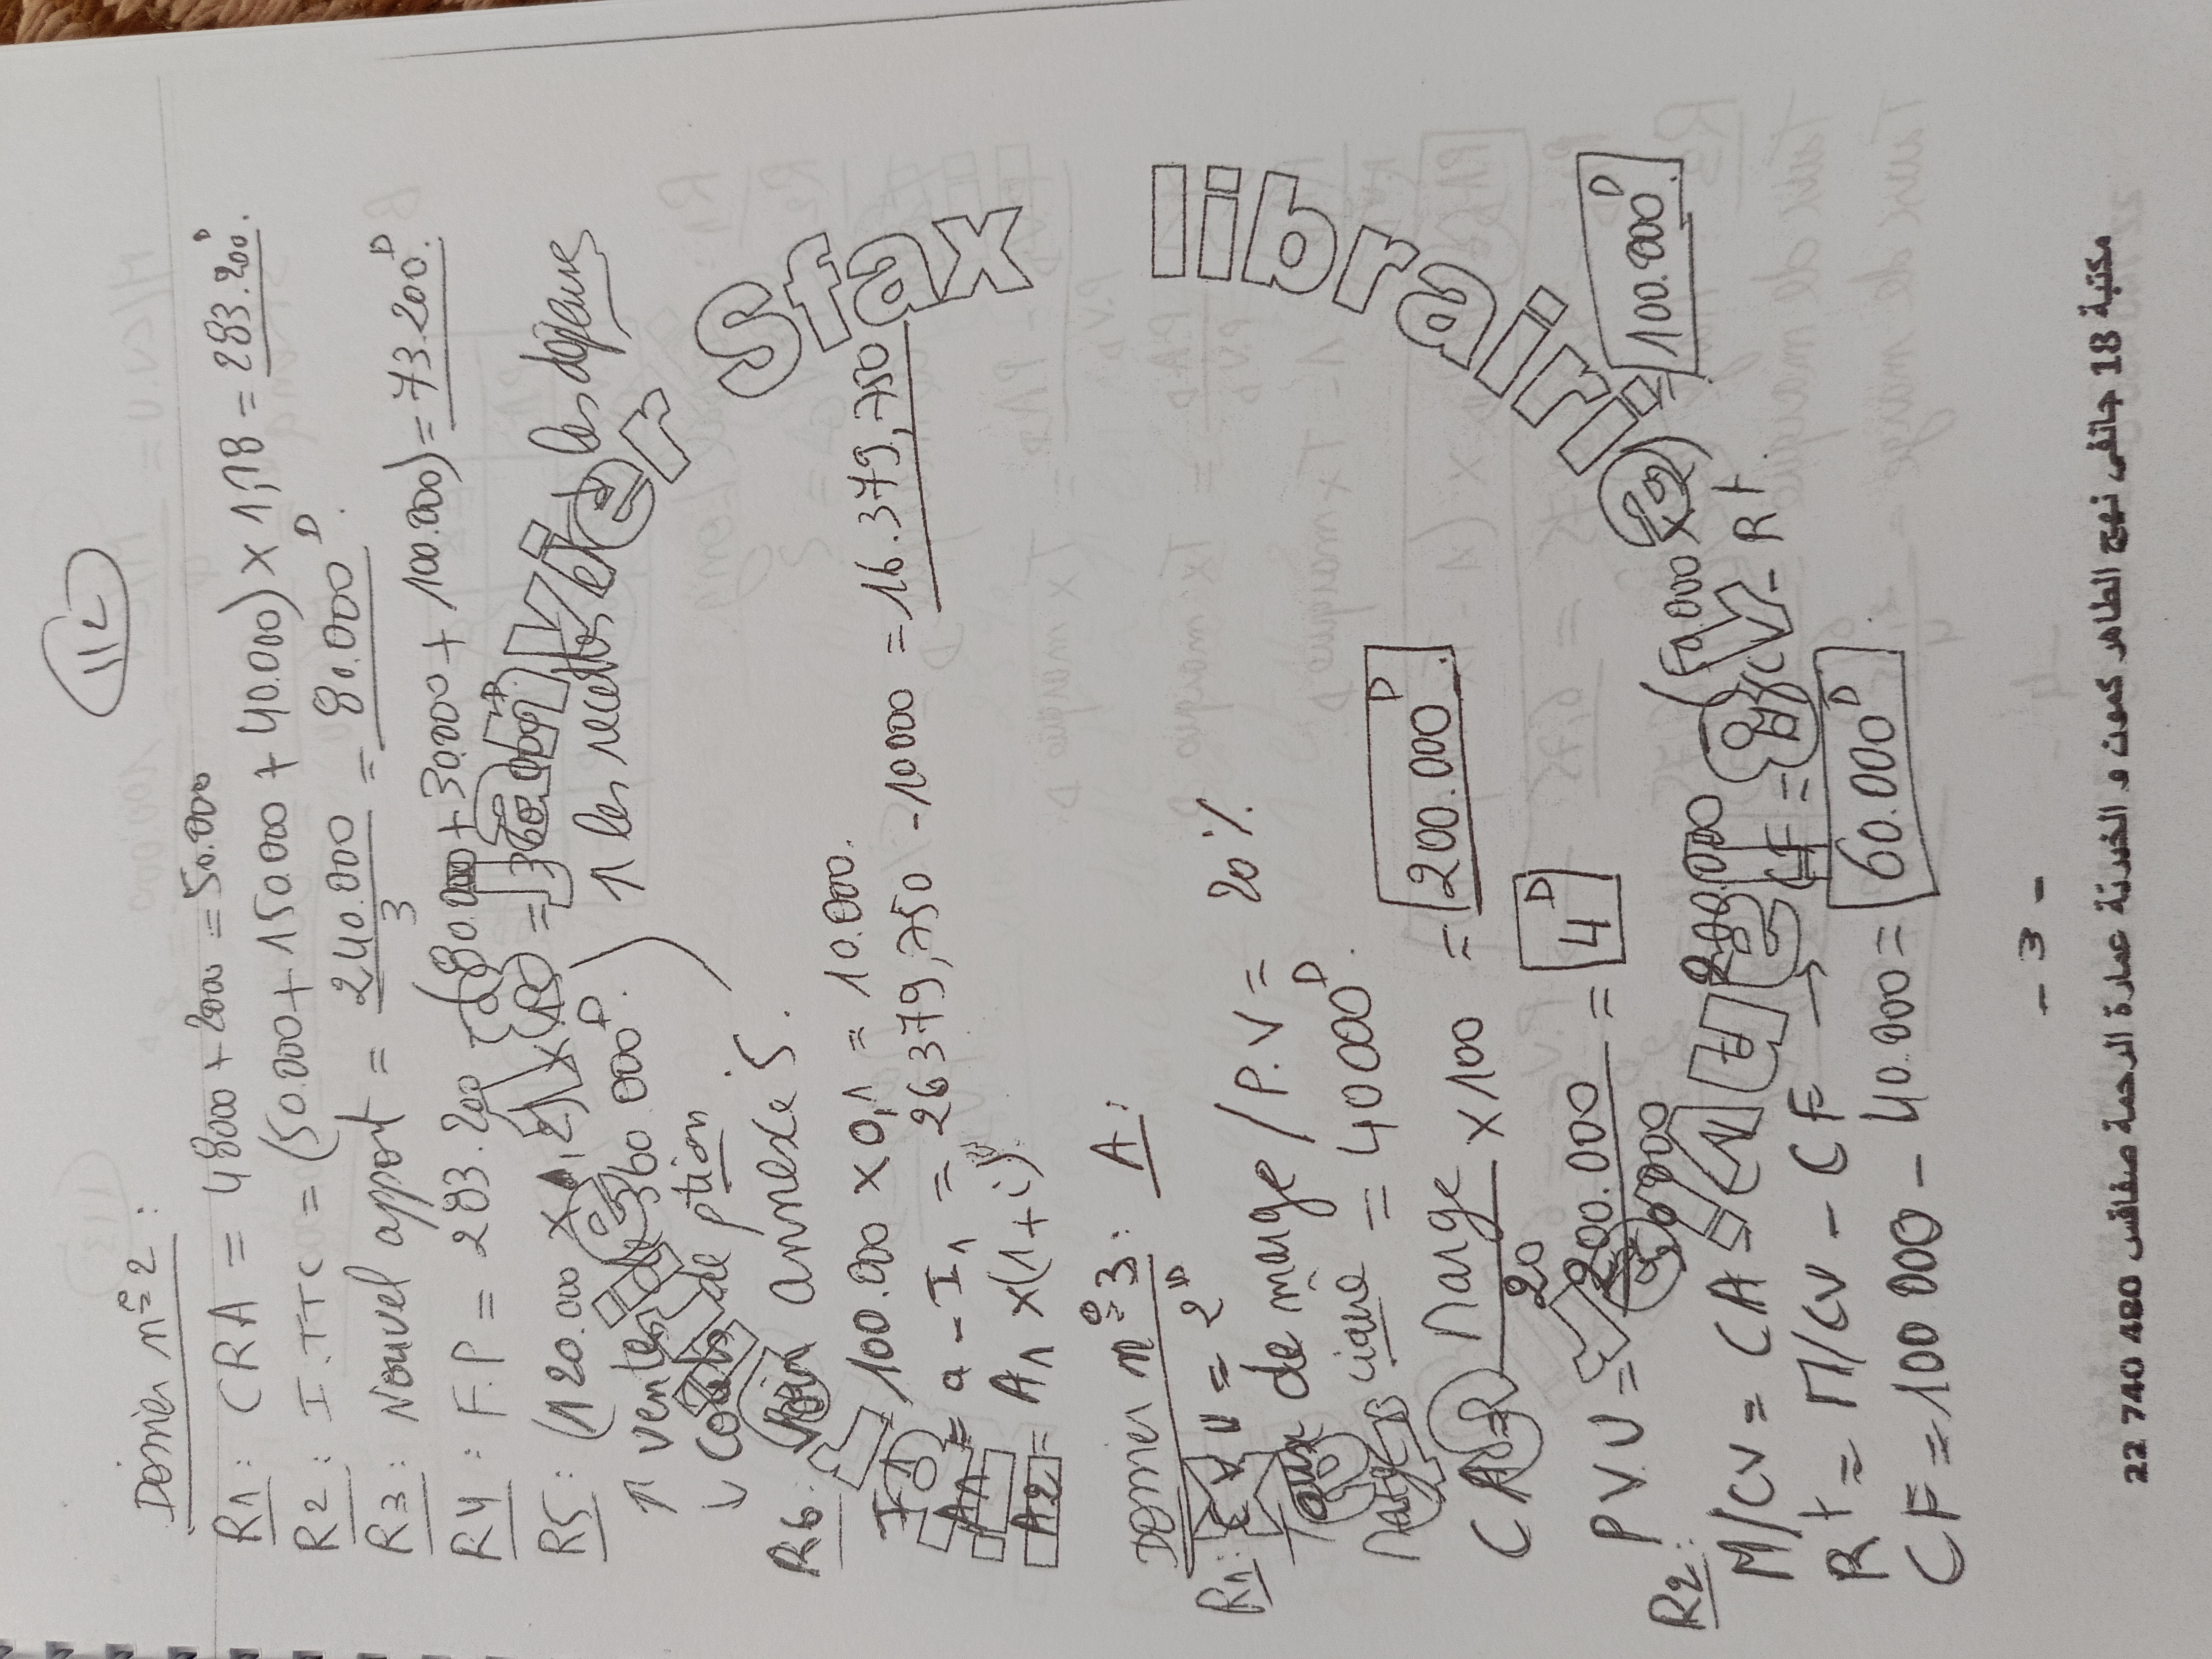 112
Dossier n°2:
R1: CRA = 48000 + 2000 = 50.000
R2: I.TTC = (50.000 + 150.000 + 40.000) x 1,18 = 283.200D.
R3: Nouvel apport = 240.000 / 3 = 80.000D.
R4: F.P = 283.200 - (80.000 + 30.000 + 100.000) = 73.200D.
R5: (120.000 x
360.000D.)
↑ ventes ↑ les recettes et ↓ les dépenses
↓ coûts de ption
R6: Voir annexe 5.
I1 = 100.000 x 0,1 = 10.000.
A1 = a - I1 = 26379,750 - 10000 = 16.379,750
A2 = A1 x (1 + i)
Sfax librairi
Dossier n°3: A:
R1: 2D
Taux de marge / P.V = 20 %
Marge = 40000D.
CA = Marge / 20 x 100 = 200.000D.
P.V.U = 200.000 / 50.000 = 4D
R2:
M/CV = CA - CV = 200.000 - (50.000 x 2) = 100.000D.
Rt = M/CV - CF → CF = M/CV - Rt
CF = 100 000 - 40.000 = 60.000D
- 3 -
مكتبة 18 جانفي نهج الطاهر كمون و الخزنة عمارة الرحمة صفاقس 22 740 480